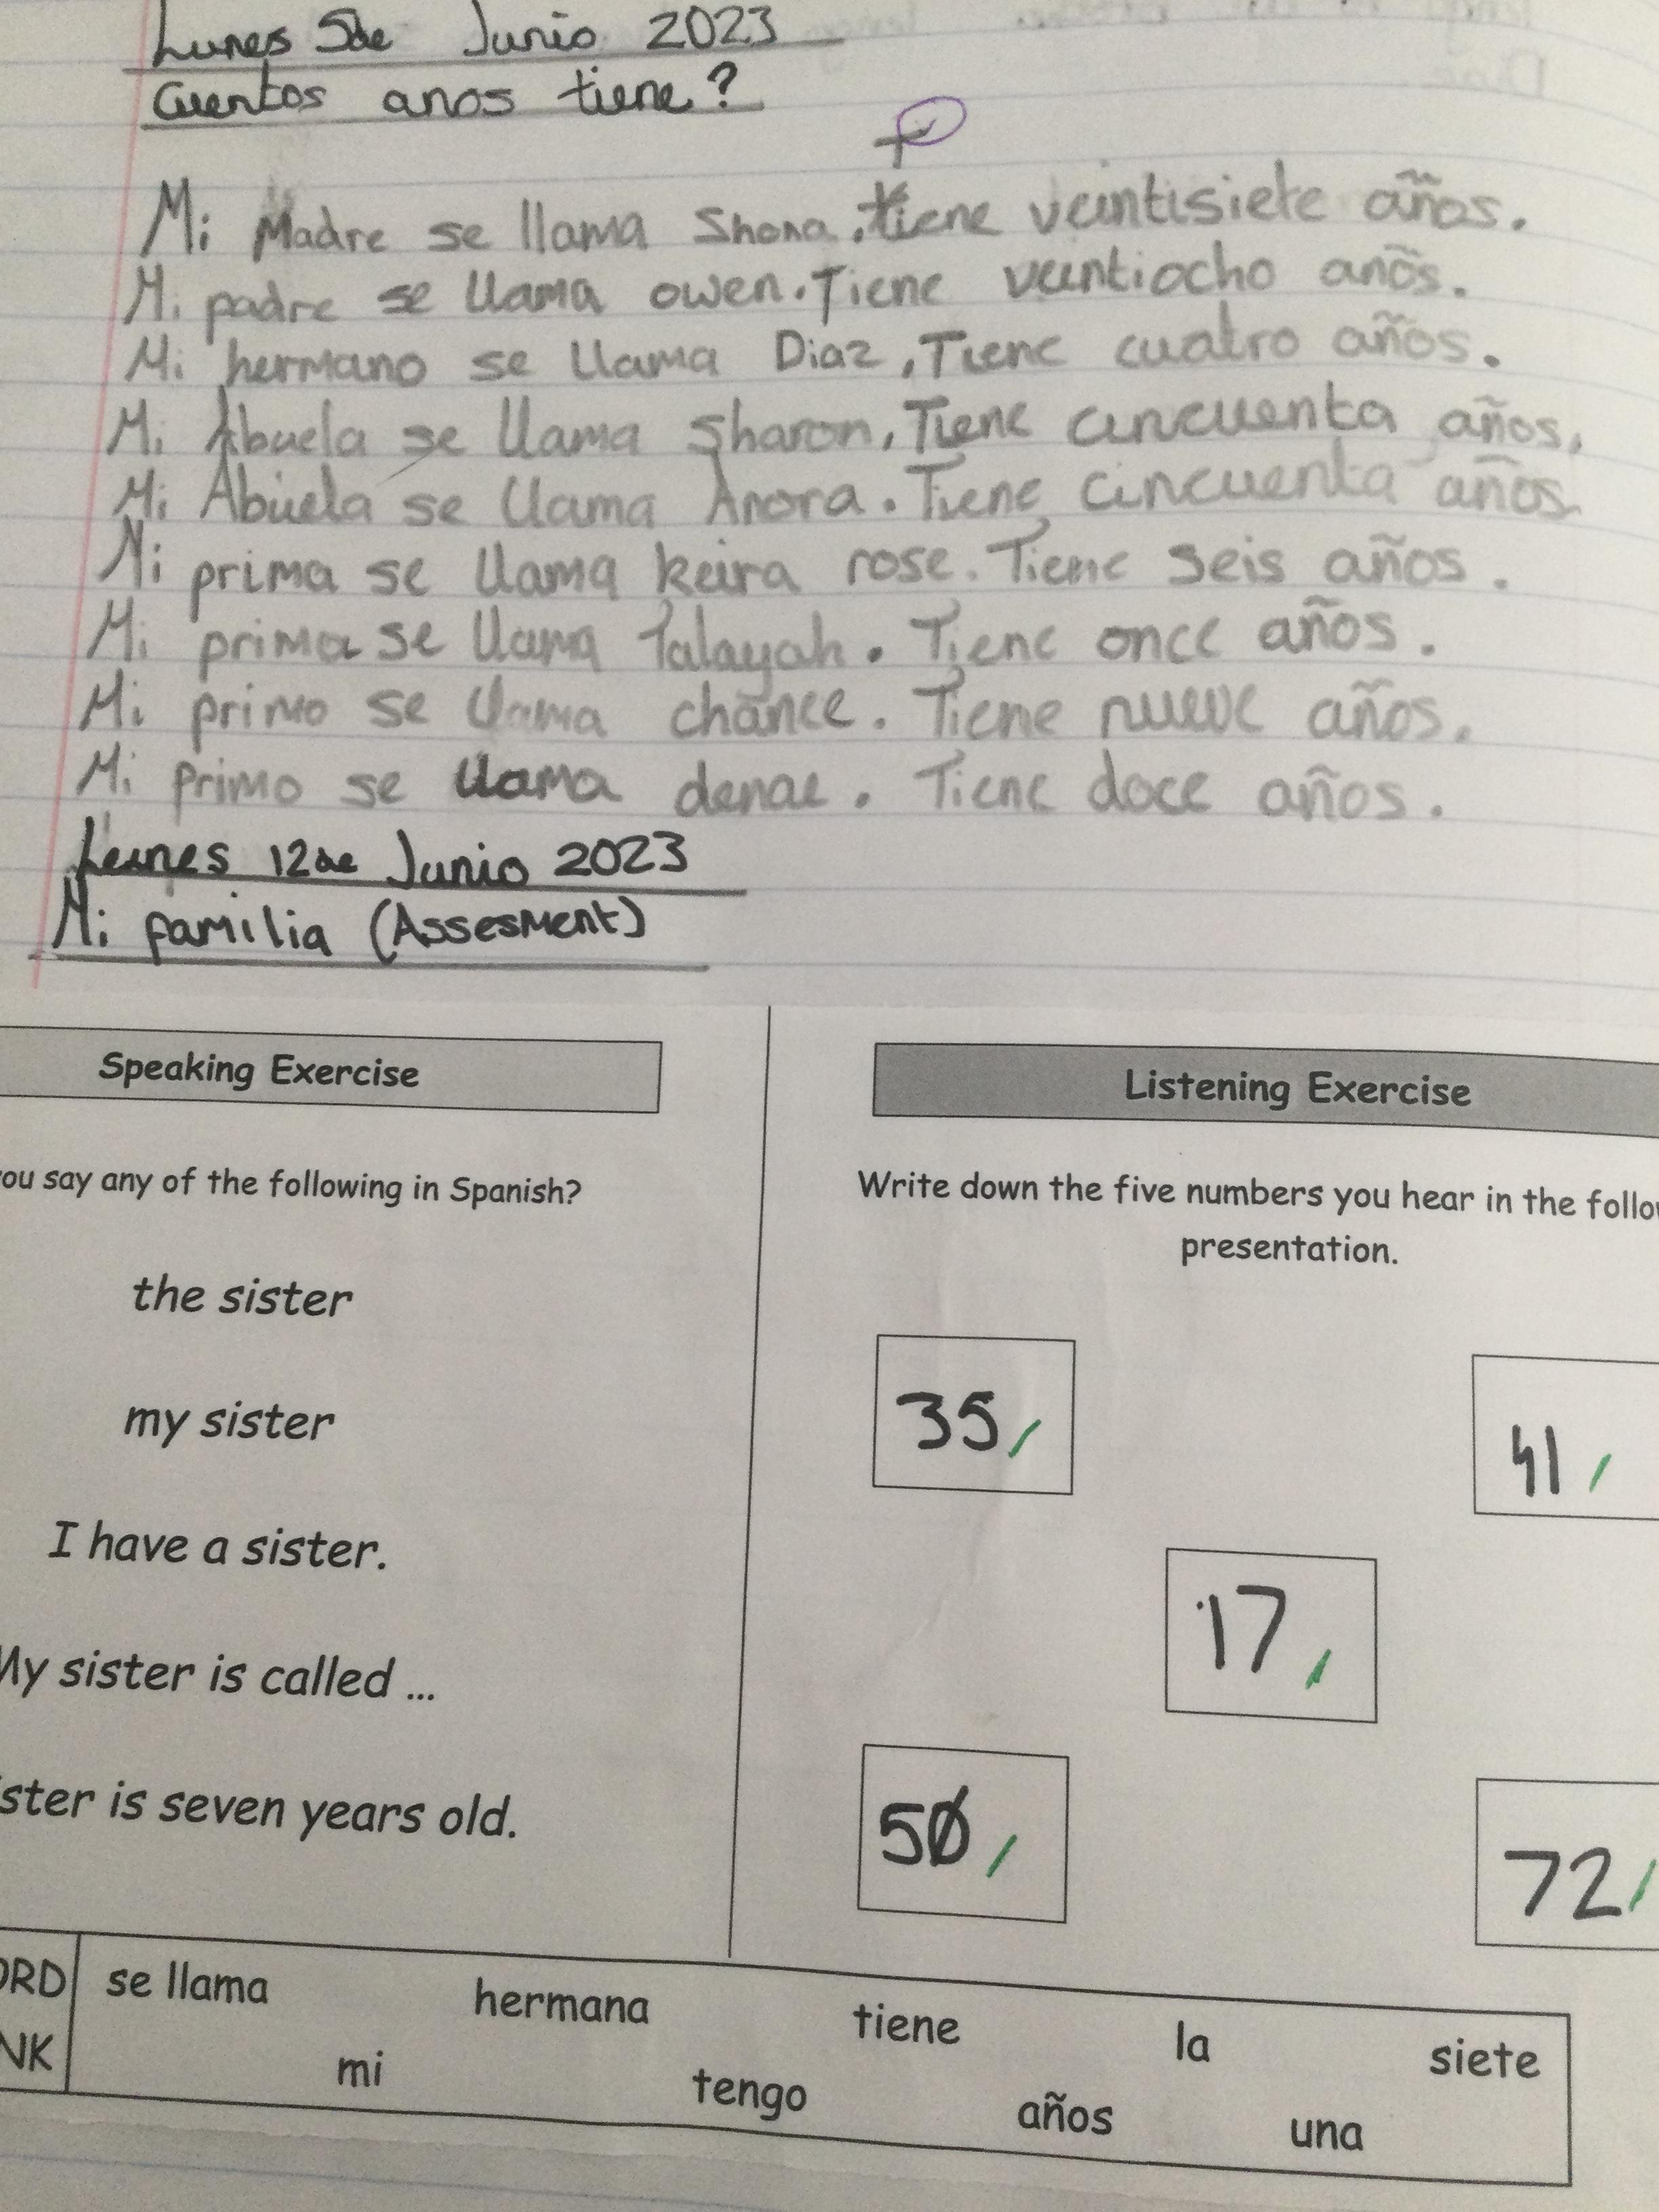 Lunes 5 de Junio 2023
Cuentos anos tiene?
Mi Madre se llama Shona. tiene veintisiete años.
Mi padre se llama owen. Tiene veintiocho años.
Mi hermano se llama Diaz, Tiene cuatro años.
Mi Abuela se llama Sharon, Tiene cincuenta años.
Mi Abuela se llama Anora. Tiene cincuenta años.
Mi prima se llama keira rose. Tiene seis años.
Mi prima se llama Talayah. Tiene once años.
Mi primo se llama chance. Tiene nueve años.
Mi primo se llama denae. Tiene doce años.
Lunes 12 de Junio 2023
Mi familia (Assesment)
Speaking Exercise
ou say any of the following in Spanish?
the sister
my sister
I have a sister.
My sister is called ...
ster is seven years old.
Listening Exercise
Write down the five numbers you hear in the follo
presentation.
35
41
17
50
72
ORD
NK
se llama hermana tiene la siete
mi tengo años una